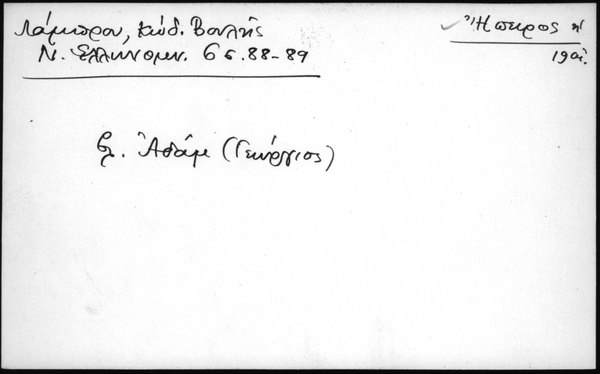 Λάμπρου, Κώδ. Βουλῆς
Ν. Ἑλληνομν. 6 σ. 88-89
Ἤπειρος κ'
19 αἰ.
βλ. Ἀδάμ (Γεώργιος)